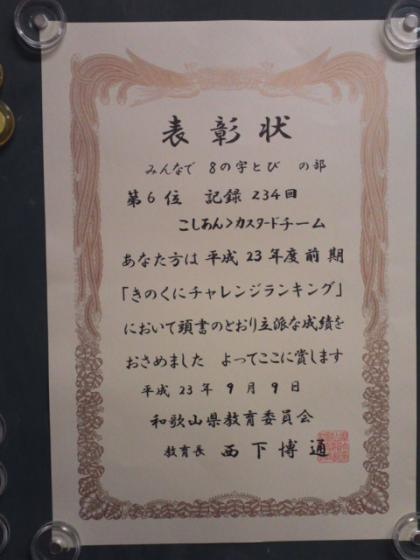 表彰状
みんなで 8の字とび の部
第6位 記録 234回
こしあん>カスタードチーム
あなた方は 平成 23年度 前期
「きのくにチャレンジランキング」
において頭書のとおり立派な成績を
おさめました よってここに賞します
平成 23年 9月 9日
和歌山県教育委員会
教育長 西下博通